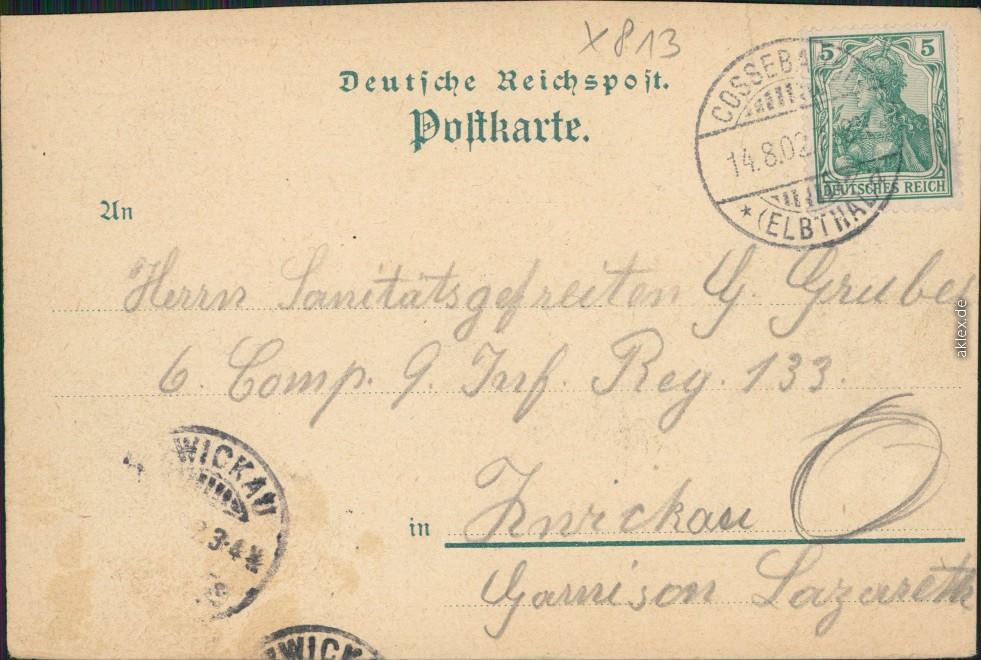 X813
Deutsche Reichspost.
Postkarte.
5 5
DEUTSCHES REICH
COSSEBA
14.8.02
* (ELBTHAL)
An
Herrn Sanitätsgefreiten G. Gruber
6. Comp. 9. Inf. Reg. 133.
in Zwickau
Garnison Lazareth
WICKAU
3-4
ZWICK
aklex.de